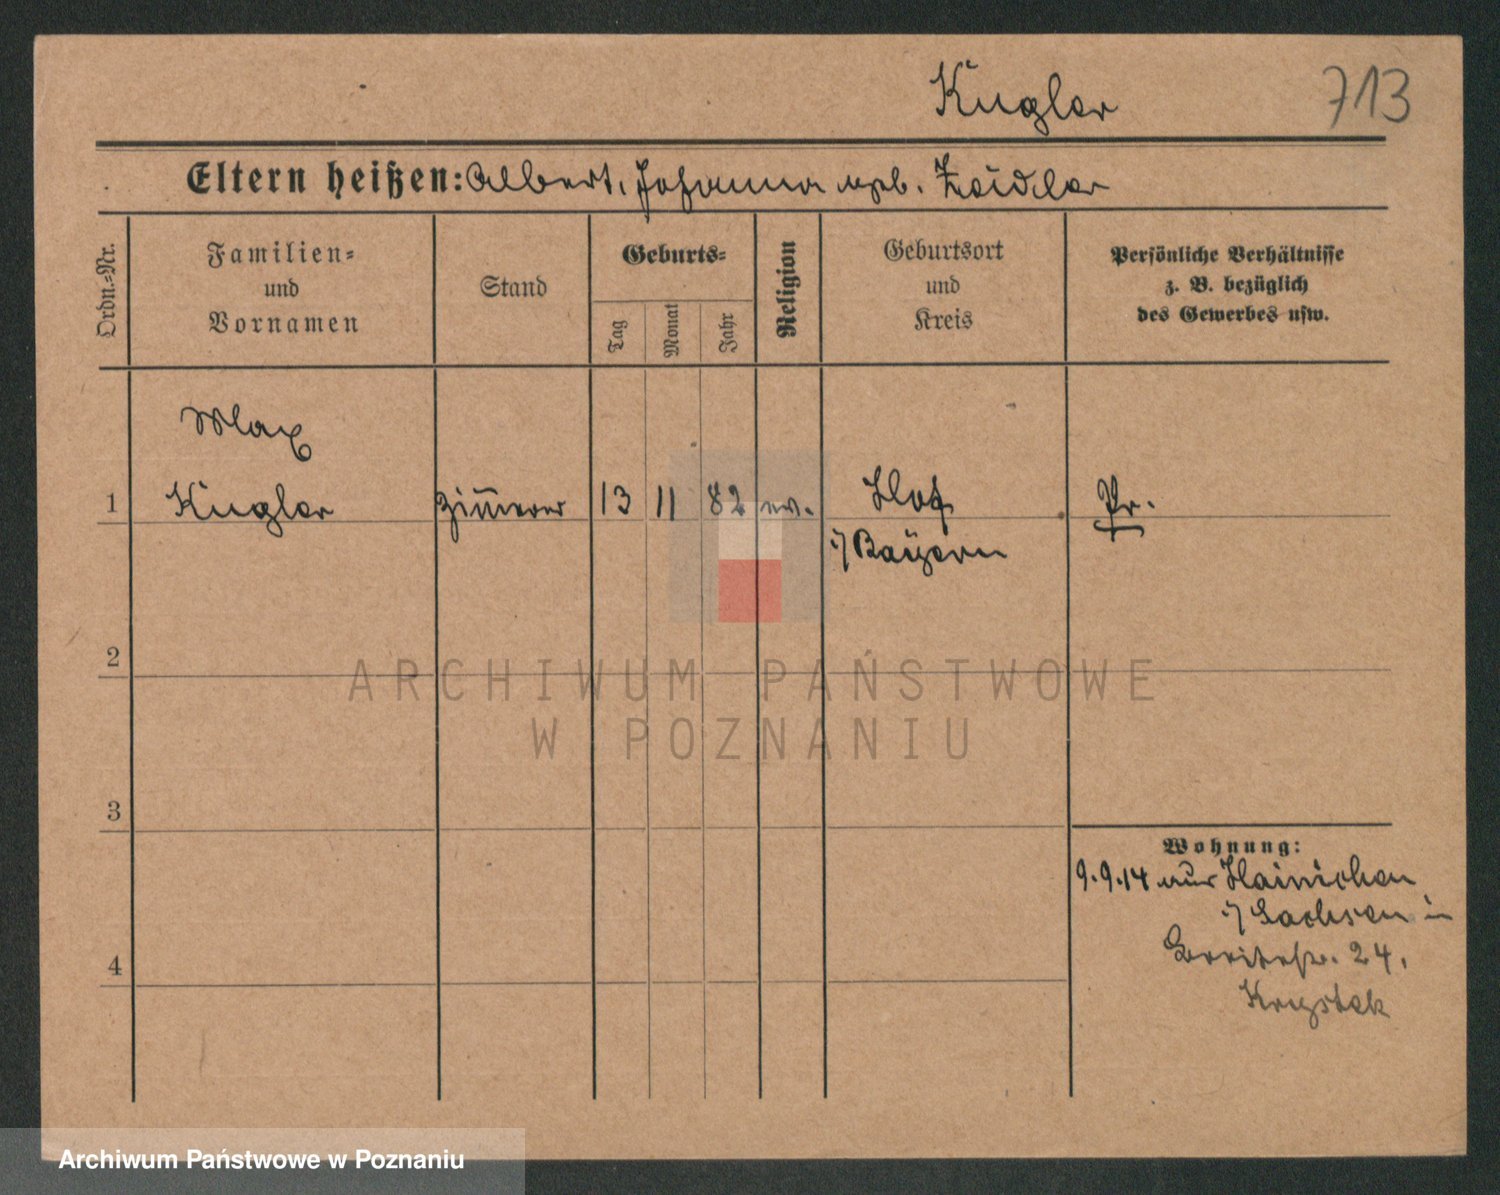 Kugler 713
Eltern heißen: Albert, Johanna geb. Zeidler
Ordn.-Nr.
Familien-
und
Vornamen
Stand
Geburts-
Tag
Monat
Jahr
Religion
Geburtsort
und
Kreis
Persönliche Verhältnisse
z. B. bezüglich
des Gewerbes usw.
Max
1 Kugler Zim̄erer 13 11 82 ev. Hof Pr.
i/ Bayern
2
ARCHIWUM PAŃSTWOWE
W POZNANIU
3
Wohnung:
9.9.14 aus Hainichen
i/ Sachsen in
24.
4
Krystek
Archiwum Państwowe w Poznaniu